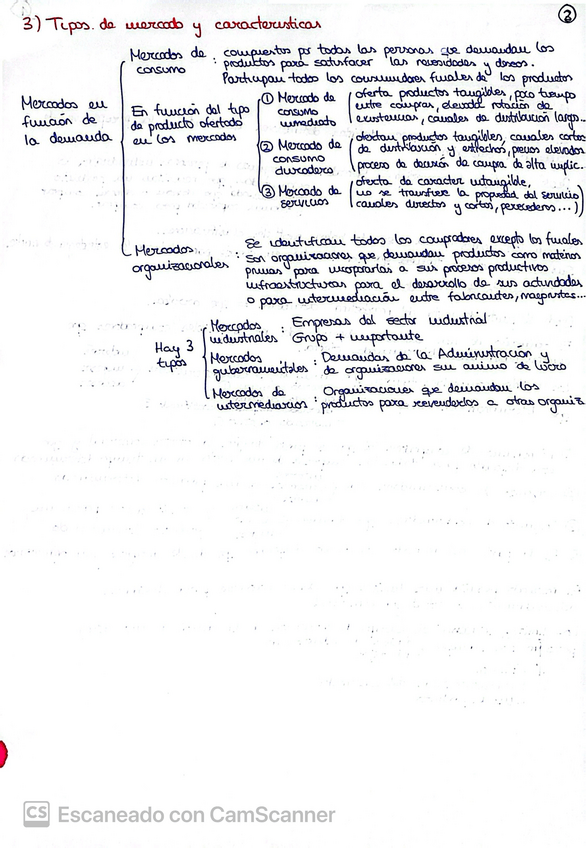 2
3) Tipos de mercado y características
Mercados en función de la demanda
Mercados de consumo : compuestos por todas las personas que demandan los
productos para satisfacer las necesidades y deseos.
Participan todos los consumidores finales de los productos
En función del tipo de producto ofertado en los mercados
① Mercado de consumo inmediato
oferta productos tangibles, poco tiempo
entre compras, elevada rotación de
existencias, canales de distribución largos...
② Mercado de consumo duradero
ofertan productos tangibles, canales cortos
de distribución y estrechos, precios elevados
proceso de decisión de compra de alta implic..
③ Mercado de servicios
oferta de caracter intangible,
no se transfiere la propiedad del servicio
canales directos y cortos, perecederos...)
Mercados organizacionales :
Se identifican todos los compradores excepto los finales
Son organizaciones que demandan productos como materias
primas para incorporarlas a sus procesos productivos
infraestructuras para el desarrollo de sus actividades
o para intermediación entre fabricantes, mayoristas...
Hay 3 tipos
Mercados industriales : Empresas del sector industrial
Grupo + importante
Mercados gubernamentales : Demandas de la Administración y
de organizaciones sin animo de lucro
Mercados de intermediarios : Organizaciones que demandan los
productos para revenderlos a otras organiz
CS Escaneado con CamScanner